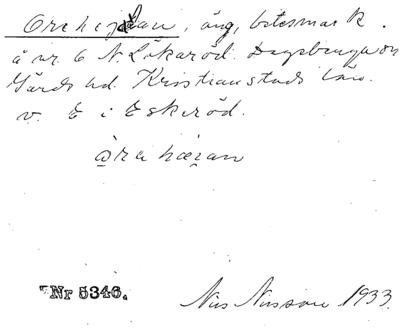 Orehejdan, äng, betesmark.
å nr. 6 N. Lökaröd. Degeberga sn
Gärds hd. Kristianstads län.
v. E i Eskeröd.
ɷ̀ra hæi̯an
Nr 5346.
Nils Nilsson 1933.